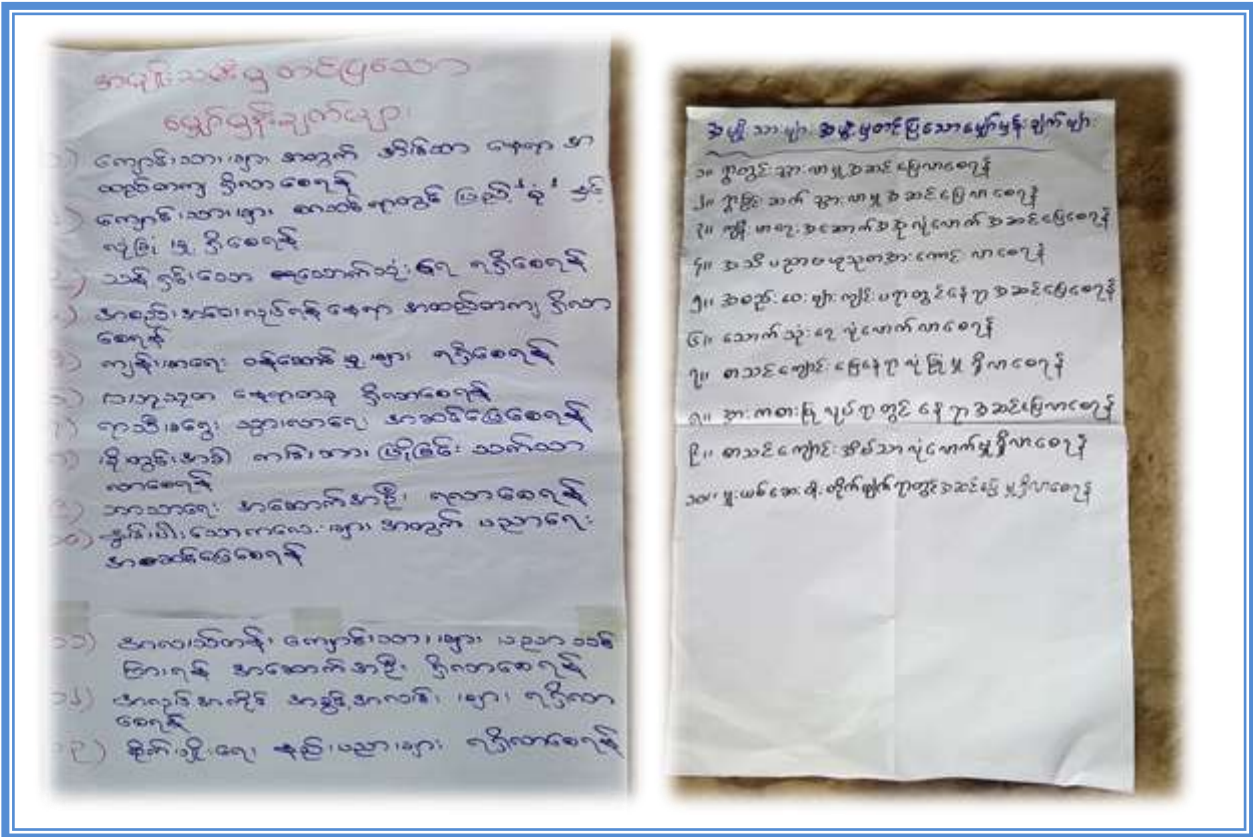 အမျိုးသမီးမှ တင်ပြသော
မျှော်မှန်းချက်များ
၁) ကျောင်းသားများ အတွက် အိမ်သာ နေရာ အ
ထည်တကျ ရှိလာစေရန်
ကျောင်းသားများ စာသင်ရာတွင် ပြည့်စုံ နှင့်
လုံခြုံမှု ရှိစေရန်
သန့်ရှင်းသော သောက်သုံးရေ ရရှိစေရန်
အစည်းအဝေးလုပ်ရန် နေရာ အထည်တကျ ရှိလာ
စေရန်
ကျန်းမာရေး ဝန်ဆောင်မှုများ ရရှိစေရန်
ဗဟုသုတ နေရာတခု ရှိလာစေရန်
ရာသီမရွေး သွားလာရေး အဆင်ပြေစေရန်
မိုးတွင်းအခါ
လာစေရန်
ဘာသာရေး အဆောက်အဦး ရလာစေရန်
၁၀) နွမ်းပါးသောကလေးများ အတွက် ပညာရေး
အဆင်ပြေစေရန်
၁၁) အလယ်တန်း ကျောင်းသားများ ပညာသင်
ကြားရန် အဆောက်အဦး ရှိလာစေရန်
၁၂) အလုပ်အကိုင် အခွင့်အလမ်းများ ရရှိလာ
စေရန်
၁၃) စိုက်ပျိုးရေး နည်းပညာများ ရရှိလာစေရန်
အမျိုးသားများ အမျိုးမှတင်ပြသောမျှော်မှန်းချက်များ
၁။ ရွာတွင်းသွားလာမှုအဆင်ပြေလာစေရန်
၂။ ရွာခြင်းဆက်သွားလာမှုအဆင်ပြေလာစေရန်
၃။ ကျန်းမာရေးအဆောက်အအုံလုံလောက်အဆင်ပြေစေရန်
၄။ အသိပညာဗဟုသုတအားကောင်းလာစေရန်
၅။ အစည်းဝေးများကျင်းပရာတွင်နေရာအဆင်ပြေစေရန်
၆။ သောက်သုံးရေလုံလောက်လာစေရန်
၇။ စာသင်ကျောင်းမြေနေရာလုံခြုံမှုရှိလာစေရန်
၈။ အားကစားပြုလုပ်ရာတွင်နေရာအဆင်ပြေလာစေရန်
၉။ စာသင်ကျောင်းအိမ်သာလုံလောက်မှုရှိလာစေရန်
၁၀။ မူးယစ်ဆေးဝါးတိုက်ဖျက်ရာတွင်အဆင်ပြေမှုရှိလာစေရန်